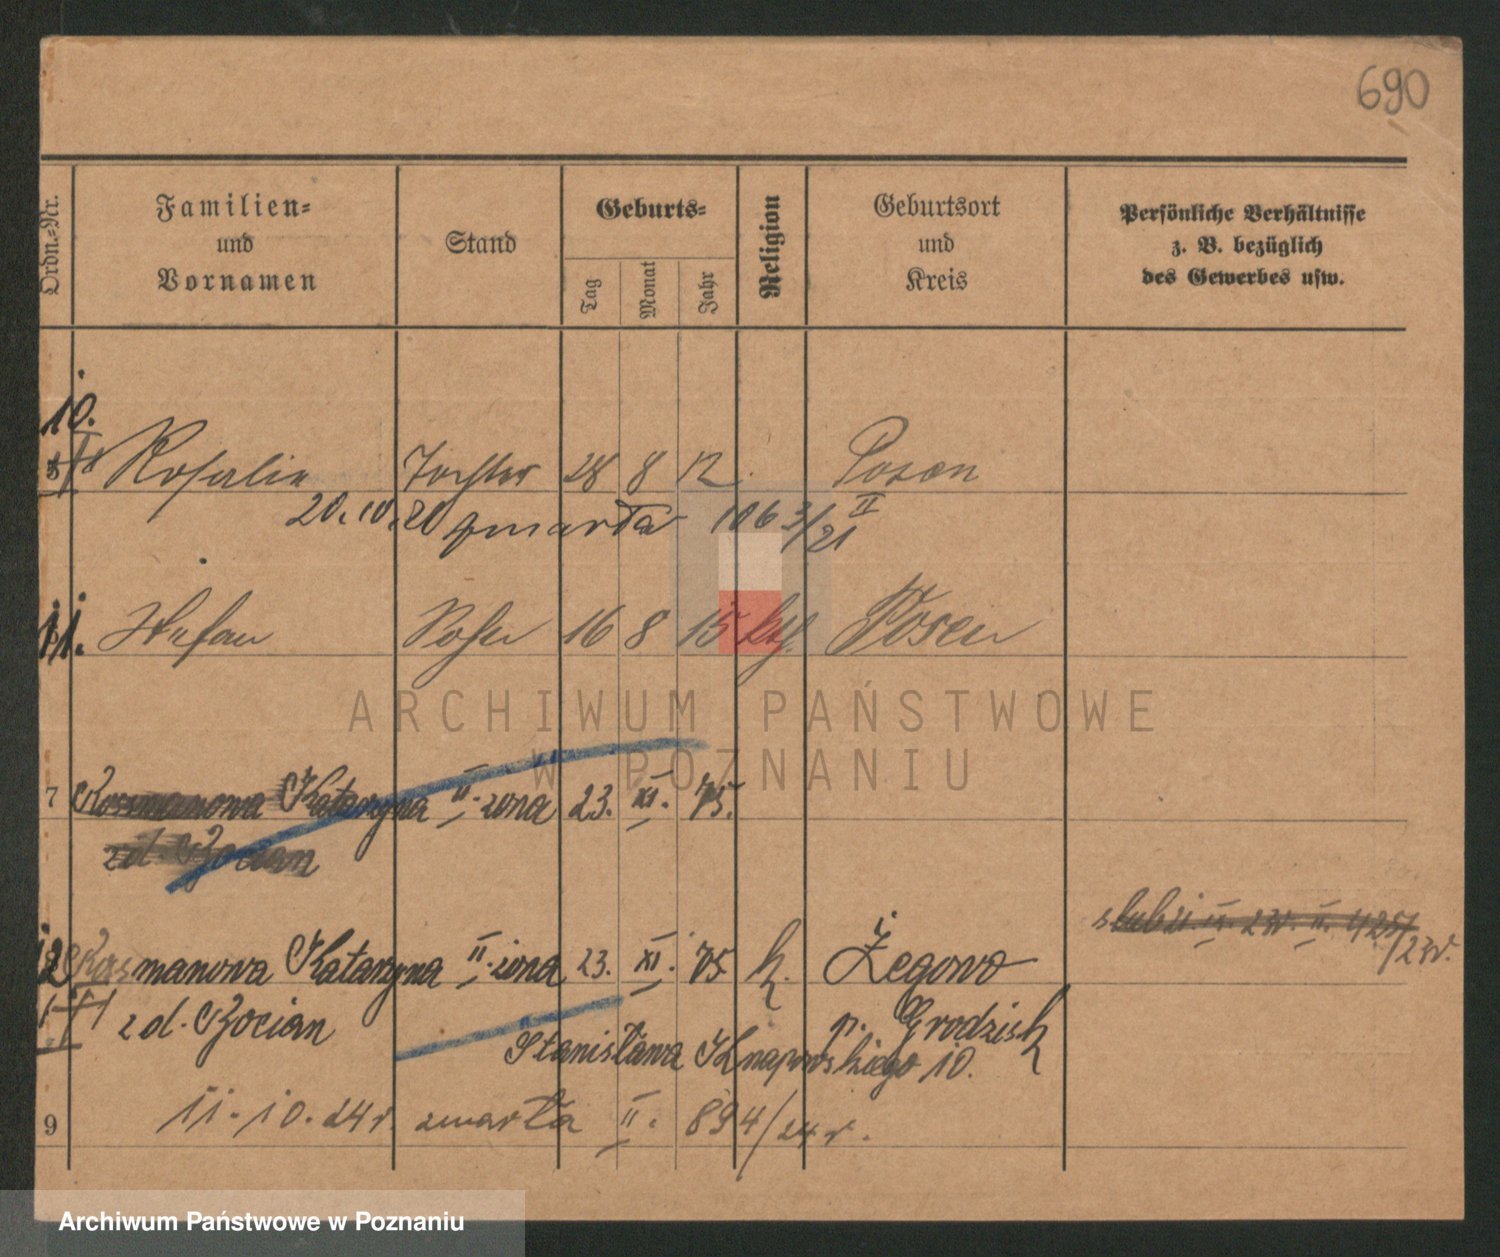 690
Ordn.-Nr.
Familien-
und
Vornamen
Stand
Geburts-
Tag
Monat
Jahr
Religion
Geburtsort
und
Kreis
Persönliche Verhältnisse
z. B. bezüglich
des Gewerbes usw.
10.
Rosalie Tochter 28 8 12 Posen
20.10.20 zmarła 1063/21 II
11. Stefan Sohn 16 8 15 kth. Posen
7 Kosmanowa Katarzyna II. żona 23. XI. 75.
z d. Bocian
ślubzi 425/23r.
12 Kosmanowa Katarzyna II. żona 23. XI. 75. k. Żegowo
z d. Bocian p. Grodzisk
Stanisława Knapowskiego 10.
9 11.10.24r. zmarła II. 894/24r.
ARCHIWUM PAŃSTWOWE
W POZNANIU
Archiwum Państwowe w Poznaniu